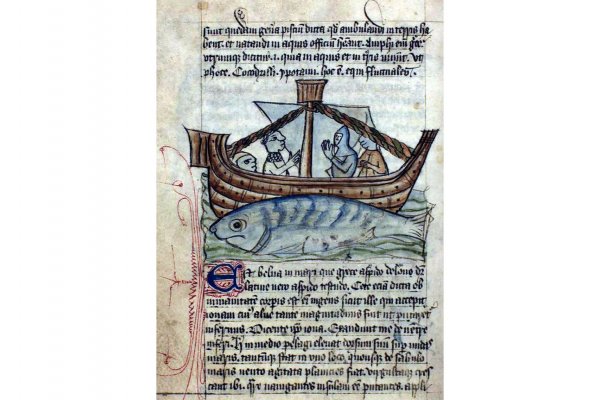 sunt quedam gena pisciu dicta qd ambulandi in terris ha
bent. et natandi in aquis officiu heant. Amphi em gre
utrumque dicitur .i. quia in aquis et in tris vivut. ut
phoce. Cocodrilli. ypotami. hoc e. equi fluctuales.
Est belua in mari que grece aspido delone dr
latine vero aspido testudo. Cete etia dicta ob
inmanitate corpis est eni ingens sicut ille qui excepit
ionam cui alvus tante magnitudinis fuit ut putaret
infernus. Dicente ipo iona. Exaudivit me de ventre
inferi. h in medio pelagi elevat dorsum suum sup undas
maris. tantumque stat in uno loco. quousque de sabulo
maris vento agitata planicies fiat. virgultaque cres
cant ibi. Qre navigantes insulam ee putantes. appli